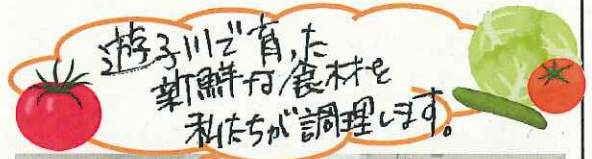 遊子川で育った
新鮮な食材を
私たちが調理します。